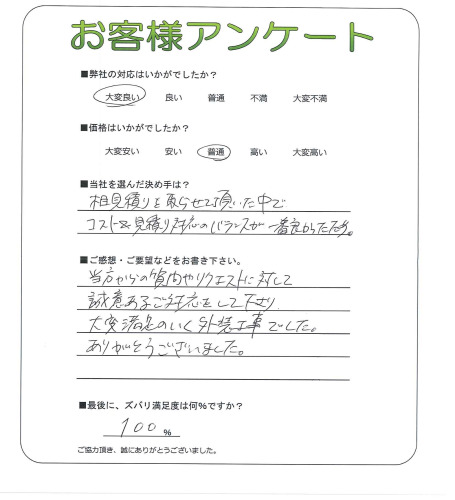 お客様アンケート
■弊社の対応はいかがでしたか？
大変良い 良い 普通 不満 大変不満
■価格はいかがでしたか？
大変安い 安い 普通 高い 大変高い
■当社を選んだ決め手は？
相見積りを取らせて頂いた中で
コスト&見積り対応のバランスが一番良かった為。
■ご感想・ご要望などをお書き下さい。
当方からの質問やリクエストに対して
誠意あるご対応をして下さり
大変満足のいく外装工事でした。
ありがとうございました。
■最後に、ズバリ満足度は何%ですか？
100 %
ご協力頂き、誠にありがとうございました。